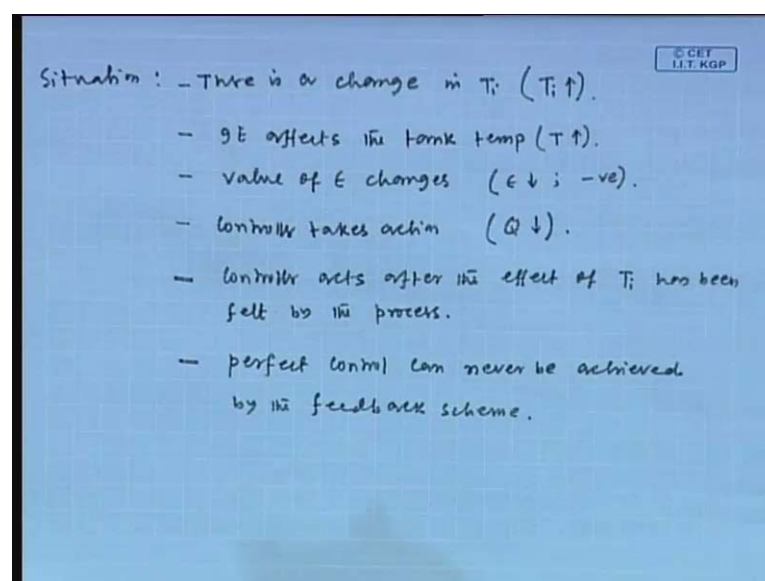 © CET
I.I.T. KGP
Situation : - There is a change in Ti (Ti ↑).
- It affects the tank temp (T ↑).
- value of ϵ changes (ϵ ↓ ; -ve).
- Controller takes action (Q ↓).
- Controller acts after the effect of Ti has been
felt by the process.
- perfect control can never be achieved
by the feedback scheme.